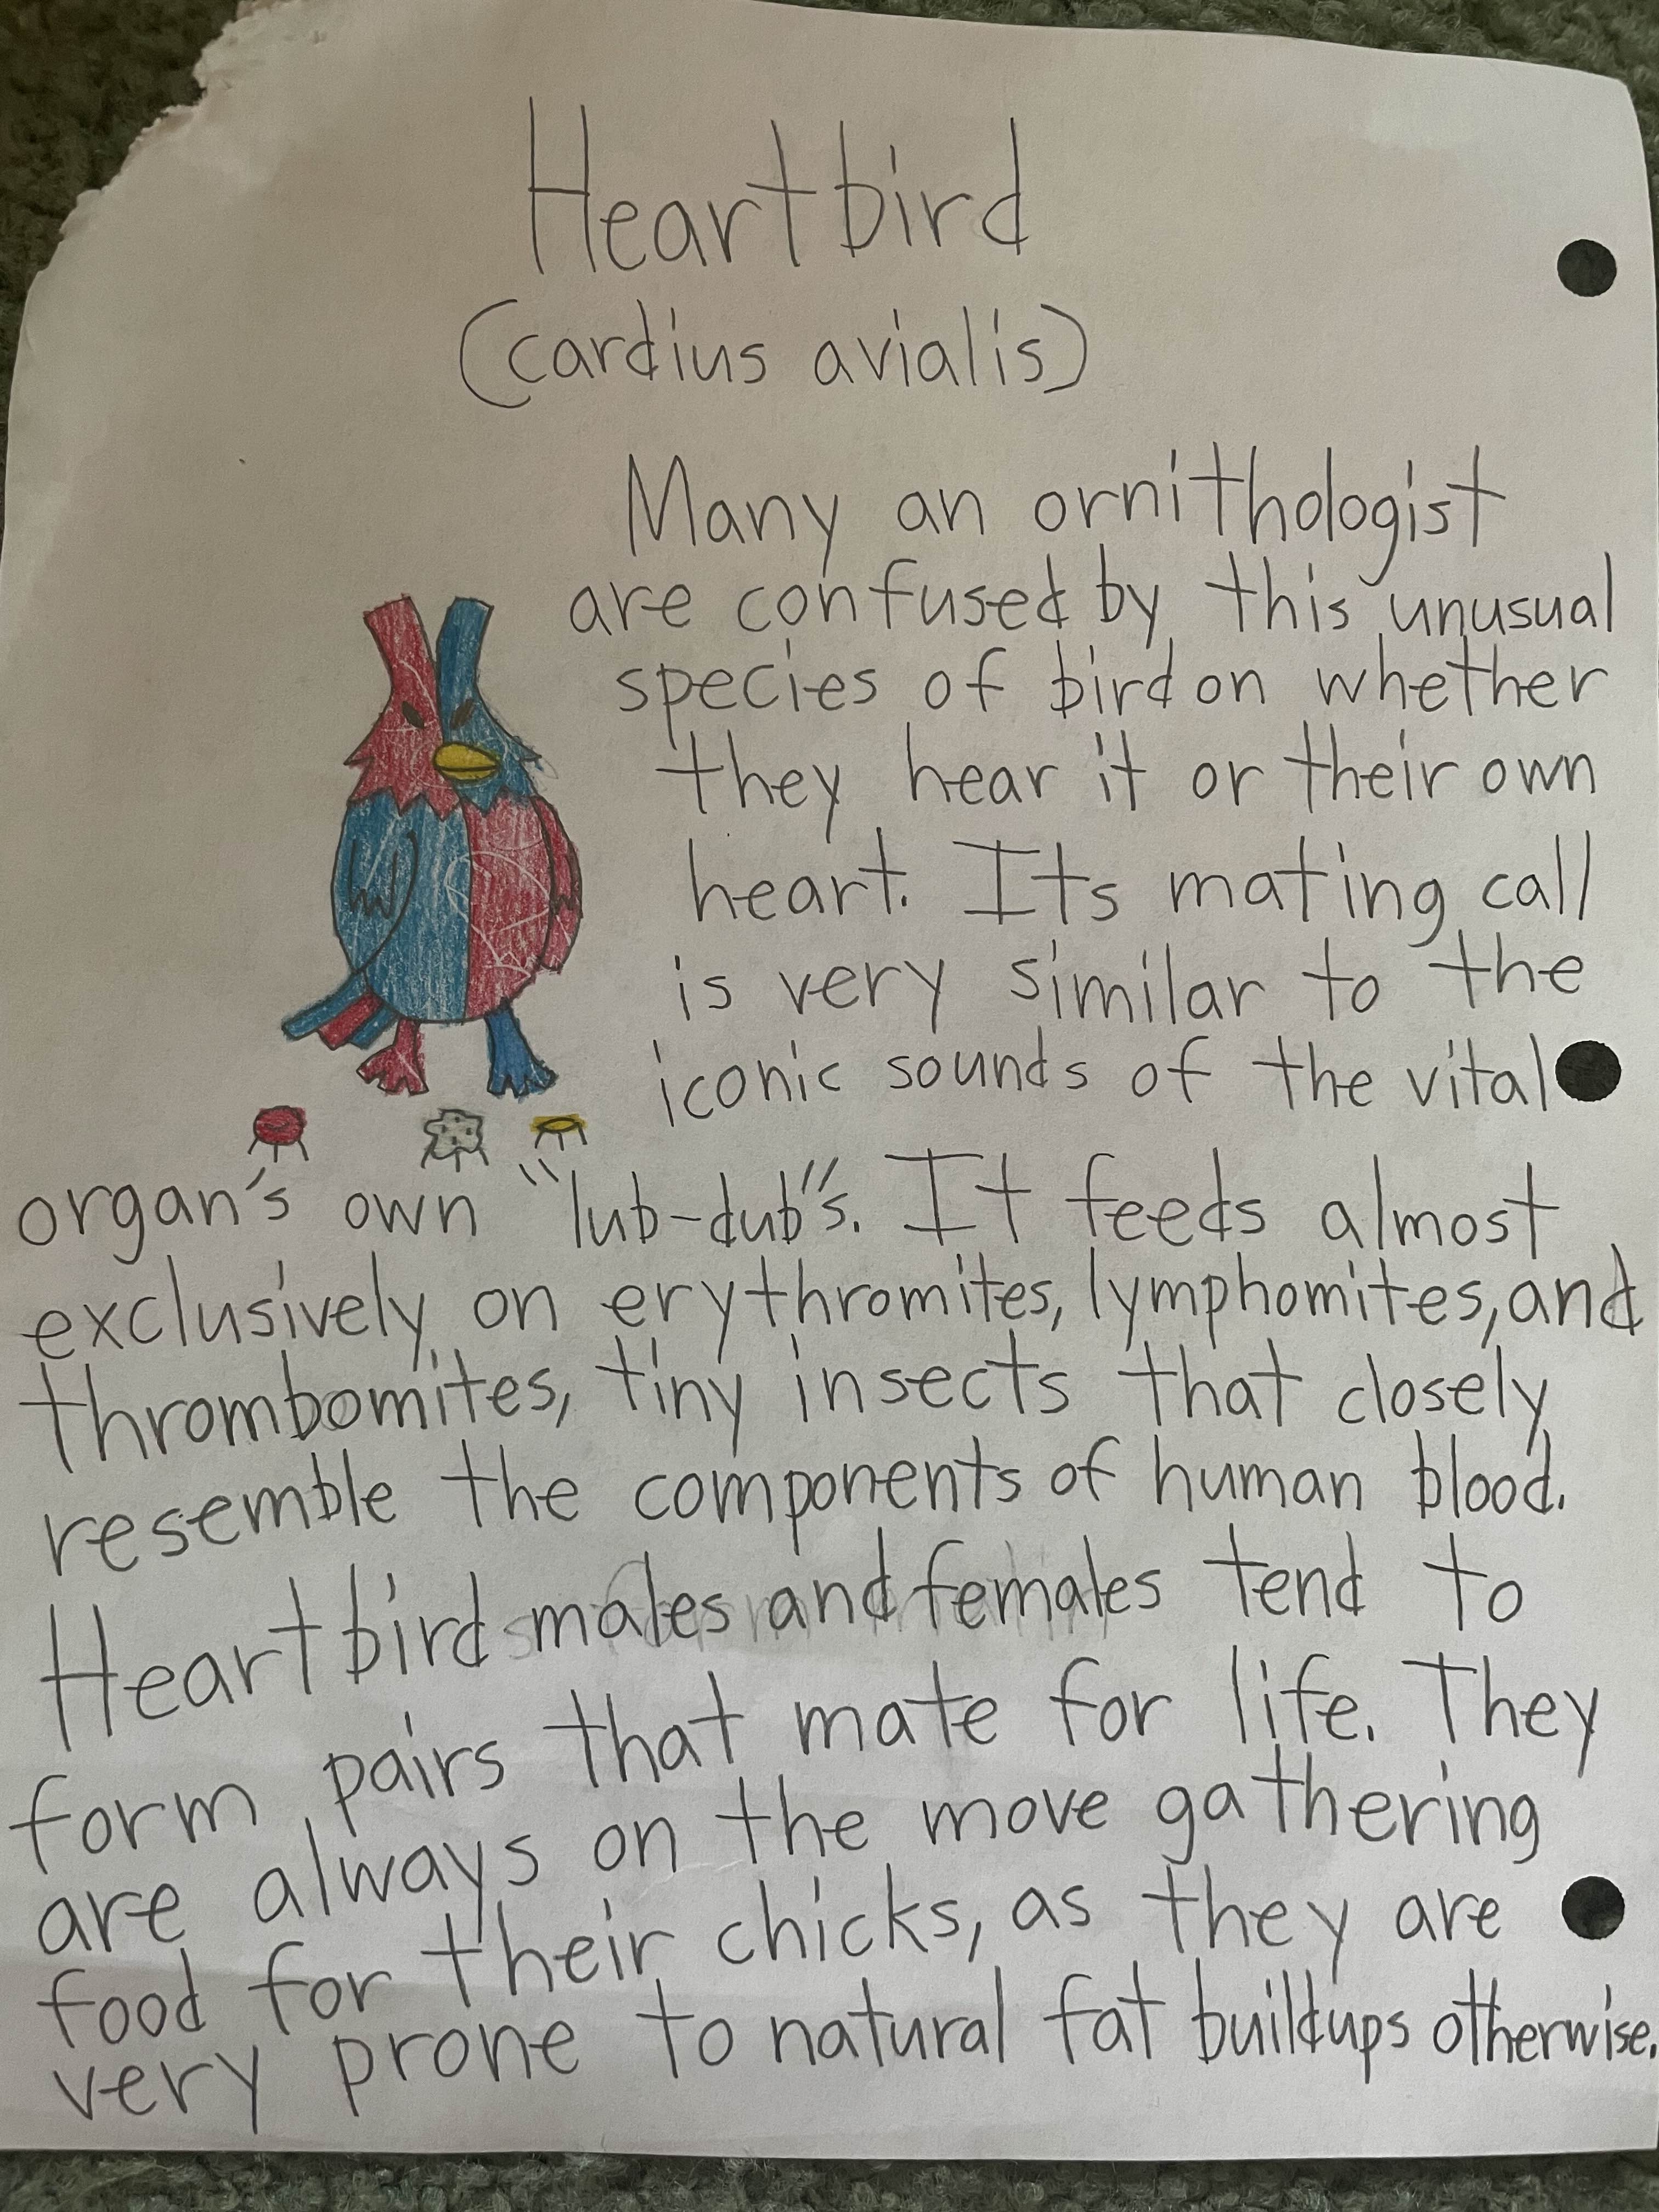 Heartbird
(cardius avialis)
Many an ornithologist
are confused by this unusual
species of bird on whether
they hear it or their own
heart. Its mating call
is very similar to the
iconic sounds of the vital
organ's own "lub-dub"s. It feeds almost
exclusively on erythromites, lymphomites, and
thrombomites, tiny insects that closely
resemble the components of human blood.
Heartbird males and females tend to
form pairs that mate for life. They
are always on the move gathering
food for their chicks, as they are
very prone to natural fat buildups otherwise.